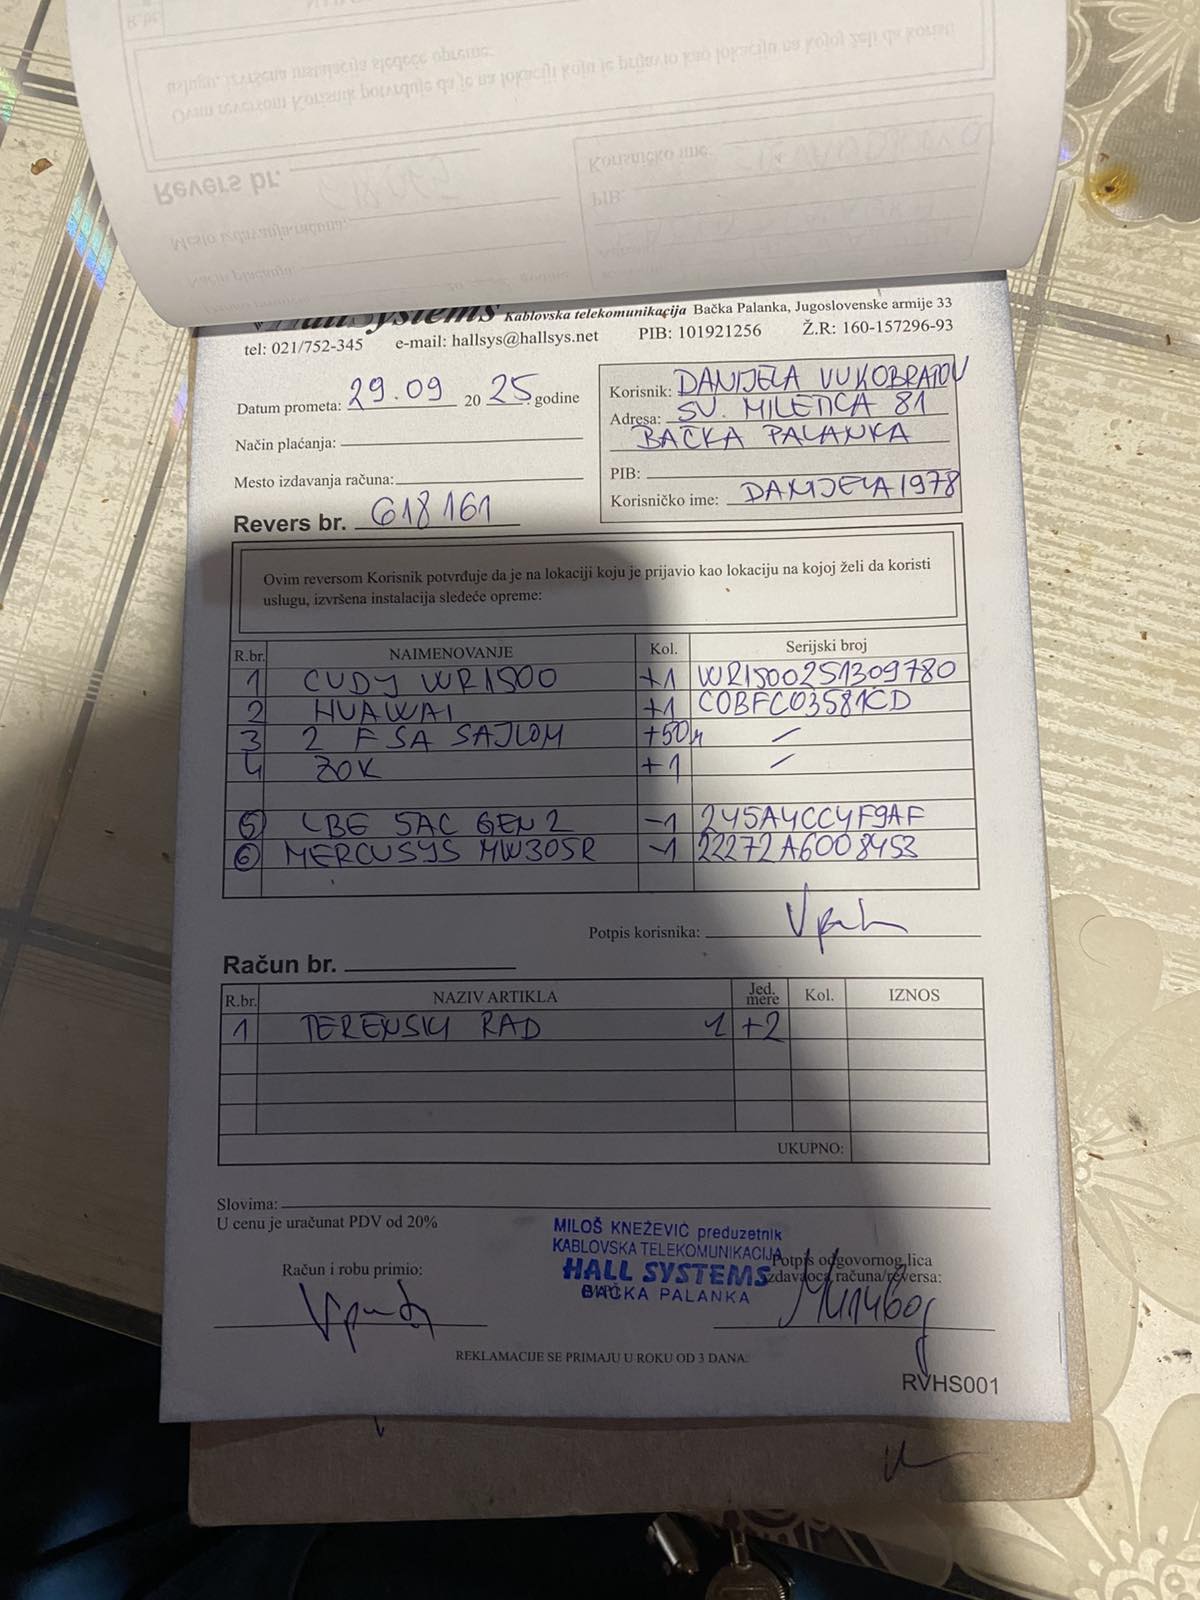 HallSystems Kablovska telekomunikacija Bačka Palanka, Jugoslovenske armije 33
tel: 021/752-345 e-mail: hallsys@hallsys.net PIB: 101921256 Ž.R: 160-157296-93
Datum prometa: 29.09 20 25 godine
Način plaćanja:
Mesto izdavanja računa:
Revers br. 618161
Korisnik: DANIJELA VUKOBRATOV
Adresa: SV. MILETIĆA 81
BAČKA PALANKA
PIB:
Korisničko ime: DANIJELA1978
Ovim reversom Korisnik potvrđuje da je na lokaciji koju je prijavio kao lokaciju na kojoj želi da koristi
uslugu, izvršena instalacija sledeće opreme:
R.br. NAIMENOVANJE Kol. Serijski broj
1 CUDY WR1500 +1 WR1500251309780
2 HUAWAI +1 C0BFC03581CD
3 2 FSA SAJLOM +50m /
4 ZOK +1 /
5 LBE 5AC GEN2 -1 245A4CC4F9AF
6 MERCUSYS MW305R -1 22272A6008453
Potpis korisnika:
Račun br.
R.br. NAZIV ARTIKLA Jed. mere Kol. IZNOS
1 TERENSKI RAD 1 +2
UKUPNO:
Slovima:
U cenu je uračunat PDV od 20%
MILOŠ KNEŽEVIĆ preduzetnik
KABLOVSKA TELEKOMUNIKACIJA
HALL SYSTEMS
BAČKA PALANKA
Račun i robu primio:
Potpis odgovornog lica
izdavaoca računa/reversa:
REKLAMACIJE SE PRIMAJU U ROKU OD 3 DANA.
RVHS001